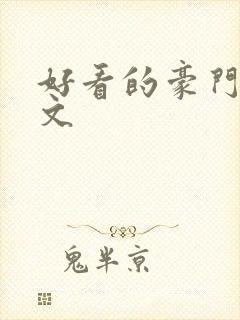 好看的豪門
文
鬼半京